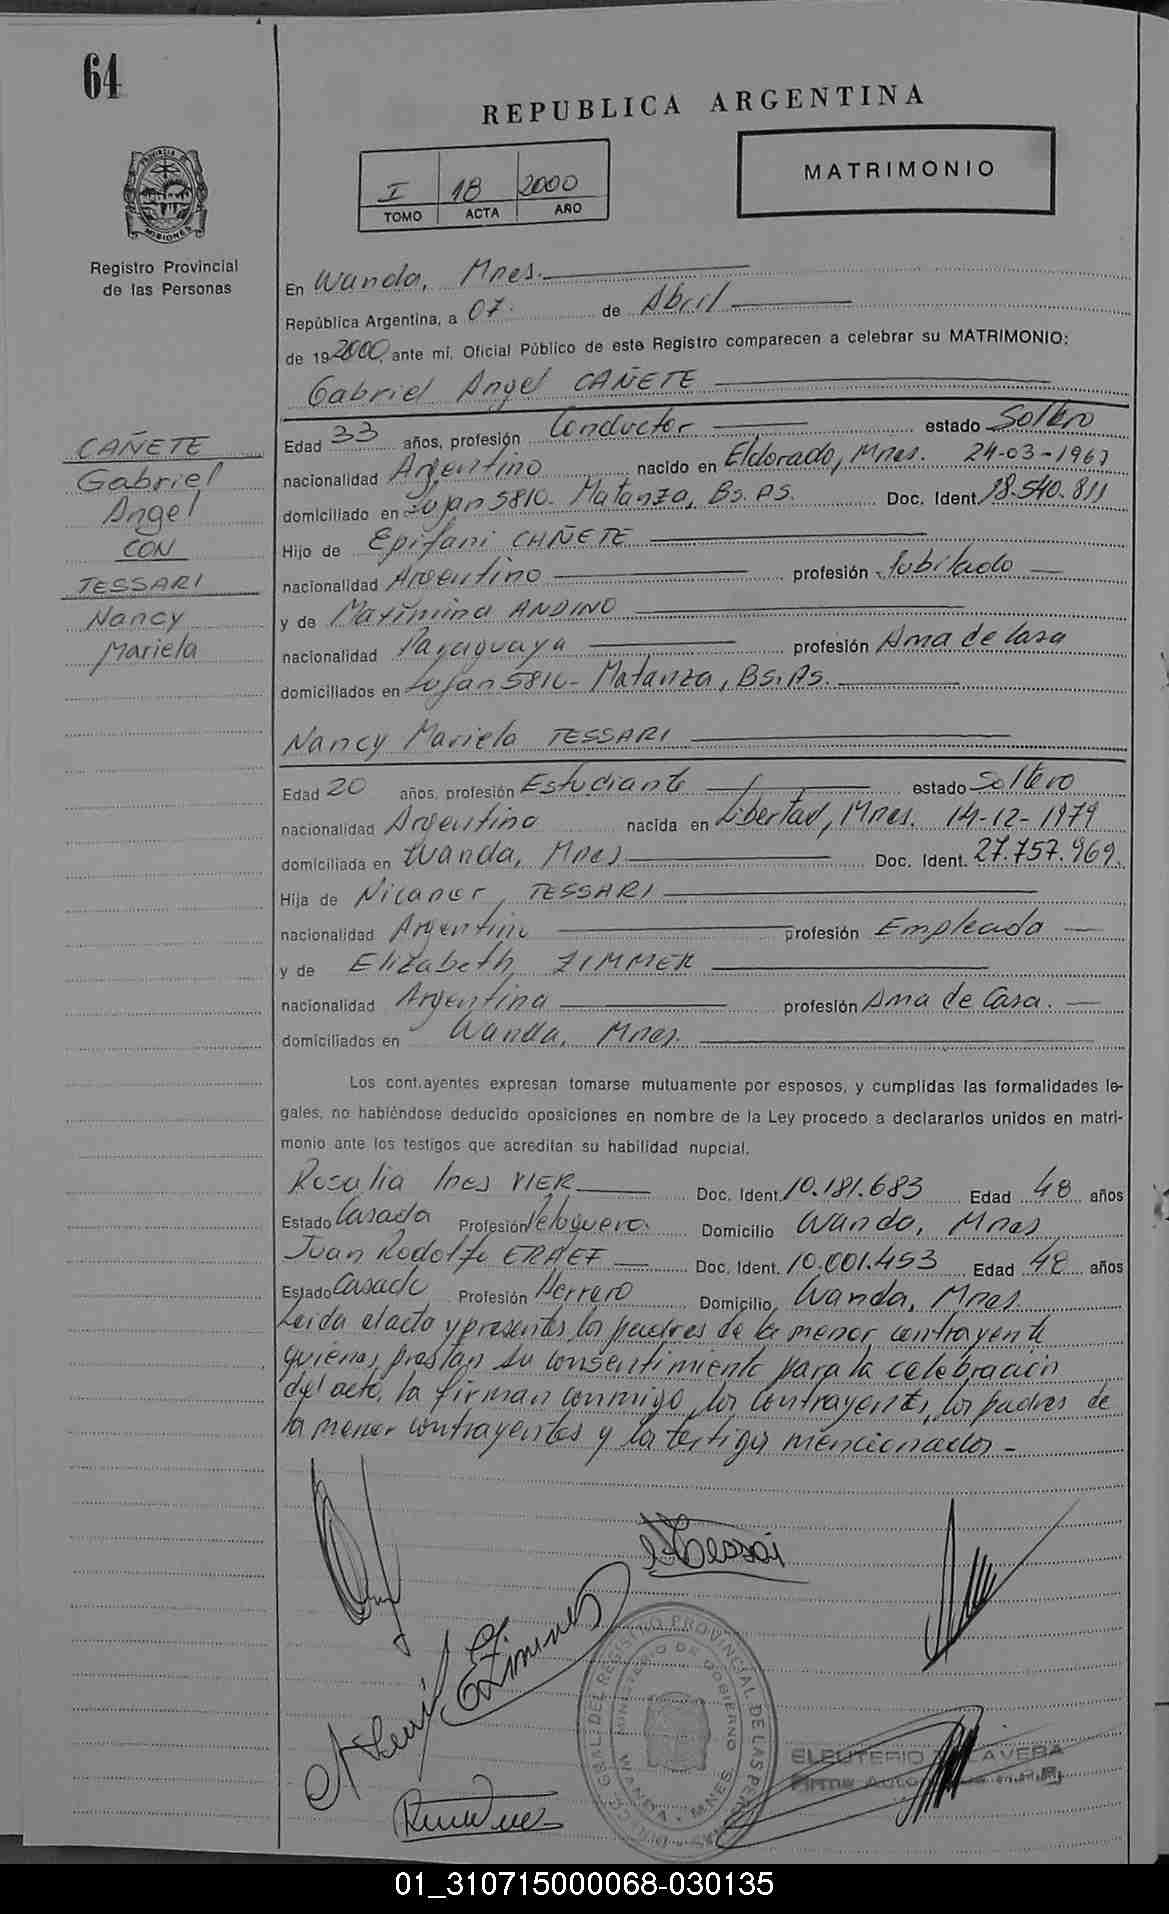 64
REPUBLICA ARGENTINA
I 18 2000
TOMO ACTA AÑO
MATRIMONIO
PROVINCIA DE MISIONES
Registro Provincial
de las Personas
En Wanda, Mnes.
República Argentina, a 07 de Abril
de 19 2000, ante mí, Oficial Público de este Registro comparecen a celebrar su MATRIMONIO:
Gabriel Angel CAÑETE
CAÑETE
Gabriel
Angel
CON
TESSARI
Nancy
Mariela
Edad 33 años, profesión Conductor estado Soltero
nacionalidad Argentino nacido en Eldorado, Mnes. 24-03-1967
domiciliado en Lujan 5810- Matanza, Bs. As. Doc. Ident. 18.540.811
Hijo de Epifani CAÑETE
nacionalidad Argentino profesión Jubilado
y de Maximina ANDINO
nacionalidad Paraguaya profesión Ama de Casa
domiciliados en Lujan 5810- Matanza, BS.AS.
Nancy Mariela TESSARI
Edad 20 años, profesión Estudiante estado Soltero
nacionalidad Argentina nacida en Libertad, Mnes. 14-12-1979
domiciliada en Wanda, Mnes Doc. Ident. 27.757.969.
Hija de Nicanor, TESSARI
nacionalidad Argentino profesión Empleado
y de Elizabeth, ZIMMER
nacionalidad Argentina profesión Ama de Casa.
domiciliados en Wanda, Mnes.
Los cont.ayentes expresan tomarse mutuamente por esposos, y cumplidas las formalidades le-
gales, no habiéndose deducido oposiciones en nombre de la Ley procedo a declararlos unidos en matri-
monio ante los testigos que acreditan su habilidad nupcial.
Rosalia Ines VIER Doc. Ident. 10.181.683 Edad 48 años
Estado Casada Profesión Peluquera. Domicilio Wanda, Mnes
Juan Rodolfo Doc. Ident. 10.001.453 Edad 48 años
Estado Casado Profesión Herrero Domicilio, Wanda, Mnes.
Leida el acto y presentes los padres de la menor contrayente
quienes prestan su consentimiento para la celebración
del acto, la firman conmigo, los contrayentes, los padres de
la menor contrayentes y los testigos mencionados-
REGISTRO PROVINCIAL DE LAS
MINISTERIO DE GOBIERNO
WANDA - MNES
ELEUTERIO
01_310715000068-030135